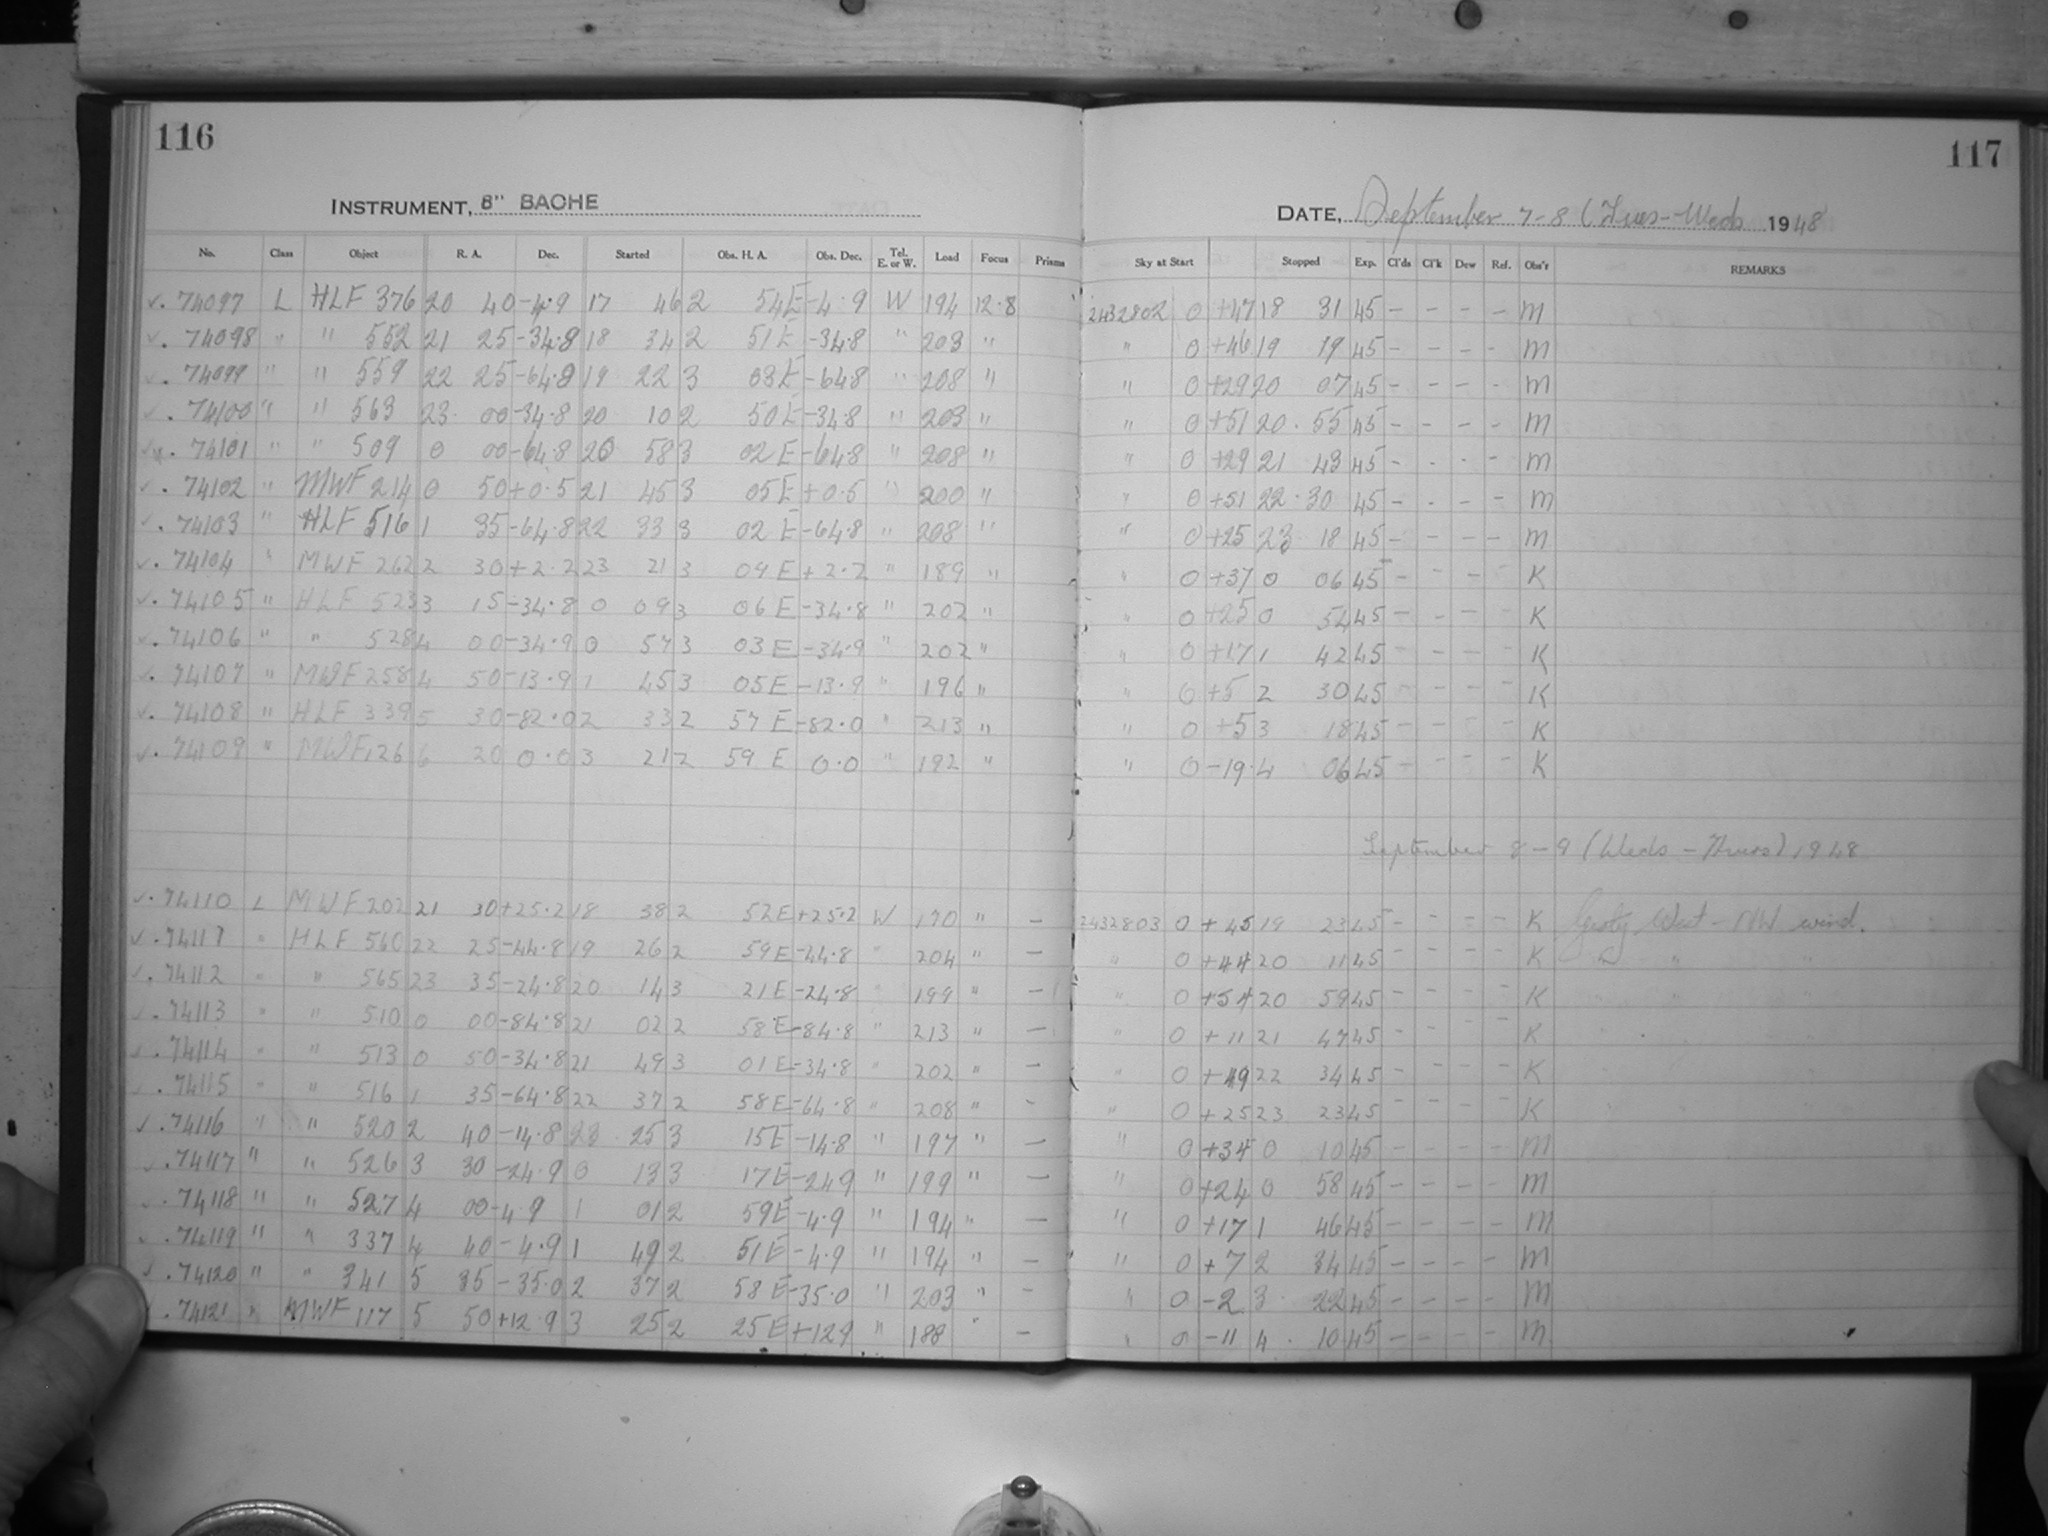 116
117
INSTRUMENT, 8" BACHE
DATE, September 7-8 (Tues-Weds 1948
No. Class Object R. A. Dec. Started Obs. H. A. Obs. Dec. Tel. E. or W. Load Focus Prisms Sky at Start Stopped Exp. Cl'ds Cl'k Dew Ref. Obs'r REMARKS
✓. 74097 L HLF 376 20 40 -4.9 17 46 2 54E -4.9 W 194 12.8 2432802 0 +47 18 31 45 - - - - M
✓. 74098 " " 552 21 25 -34.8 18 34 2 51E -34.8 " 203 " " 0 +46 19 19 45 - - - - M
✓. 74099 " " 559 22 25 -64.8 19 22 3 03E -64.8 " 208 " " 0 +29 20 07 45 - - - - M
✓. 74100 " " 563 23 00 -34.8 20 10 2 50E -34.8 " 203 " " 0 +51 20 55 45 - - - - M
✓. 74101 " " 509 0 00 -64.8 20 58 3 02E -64.8 " 208 " " 0 +29 21 43 45 - - - - M
✓. 74102 " MWF 214 0 50 +0.5 21 45 3 05E +0.5 " 200 " " 0 +51 22 30 45 - - - - M
✓. 74103 " HLF 516 1 35 -64.8 22 33 3 02E -64.8 " 208 " " 0 +25 23 18 45 - - - - M
✓. 74104 " MWF 262 2 30 +2.2 23 21 3 09E +2.2 " 189 " " 0 +37 0 06 45 - - - - K
✓. 74105 " HLF 523 3 15 -34.8 0 09 3 06E -34.8 " 202 " " 0 +25 0 54 45 - - - - K
✓. 74106 " " 528 4 00 -34.9 0 57 3 03E -34.9 " 202 " " 0 +17 1 42 45 - - - - K
✓. 74107 " MWF 258 4 50 -13.9 1 45 3 05E -13.9 " 196 " " 0 +5 2 30 45 - - - - K
✓. 74108 " HLF 339 5 30 -82.0 2 33 2 57E -82.0 " 213 " " 0 +5 3 18 45 - - - - K
✓. 74109 " MWF 126 6 20 0.0 3 21 2 59E 0.0 " 192 " " 0 -19 4 06 45 - - - - K
September 8-9 (Weds-Thurs) 1948
✓. 74110 L MWF 202 21 30 +25.2 18 38 2 52E +25.2 W 170 " - 2432803 0 +45 19 23 45 - - - - K Gusty West-NW wind.
✓. 74111 " HLF 560 22 25 -44.8 19 26 2 59E -44.8 " 204 " - " 0 +44 20 11 45 - - - - K " "
✓. 74112 " " 565 23 35 -24.8 20 14 3 21E -24.8 " 199 " - " 0 +54 20 59 45 - - - - K
✓. 74113 " " 510 0 00 -84.8 21 02 2 58E -84.8 " 213 " - " 0 +11 21 47 45 - - - - K
✓. 74114 " " 513 0 50 -34.8 21 49 3 01E -34.8 " 202 " - " 0 +49 22 34 45 - - - - K
✓. 74115 " " 516 1 35 -64.8 22 37 2 58E -64.8 " 208 " - " 0 +25 23 23 45 - - - - K
✓. 74116 " " 520 2 40 -14.8 23 25 3 15E -14.8 " 197 " - " 0 +34 0 10 45 - - - - M
✓. 74117 " " 526 3 30 -24.9 0 13 3 17E -24.9 " 199 " - " 0 +24 0 58 45 - - - - M
✓. 74118 " " 527 4 00 -4.9 1 01 2 59E -4.9 " 194 " - " 0 +17 1 46 45 - - - - M
✓. 74119 " " 337 4 40 -4.9 1 49 2 51E -4.9 " 194 " - " 0 +7 2 34 45 - - - - M
✓. 74120 " " 341 5 35 -35.0 2 37 2 58E -35.0 " 203 " - " 0 -2 3 22 45 - - - - M
✓. 74121 " MWF 117 5 50 +12.9 3 25 2 25E +12.9 " 188 " - " 0 -11 4 10 45 - - - - M